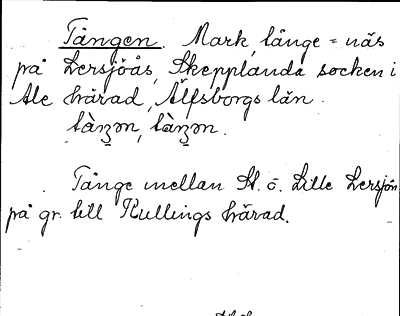 Tången. Mark, långe = näs
på Lersjöås, Skepplanda socken i
Ale härad, Älfsborgs län.
Tånge mellan St. o. Lille Lersjön
på gr. till Kullings härad.